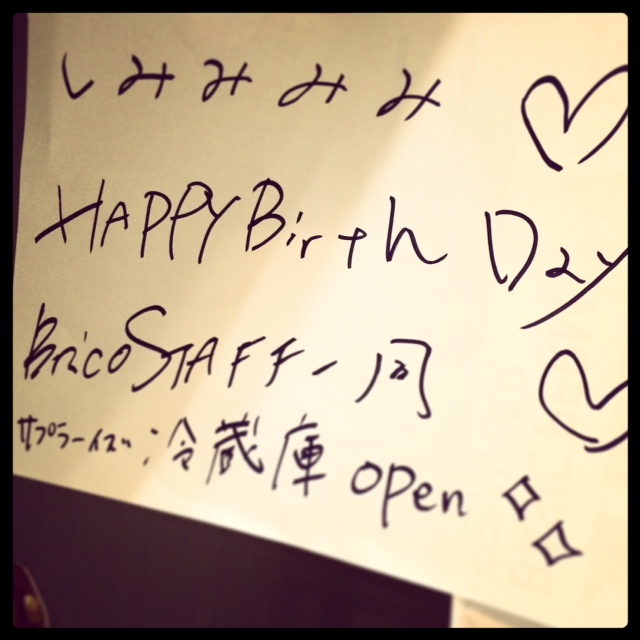 しみみみみ
HAPPY Birth Day
Brico STAFF一同
サプライズ;冷蔵庫 open